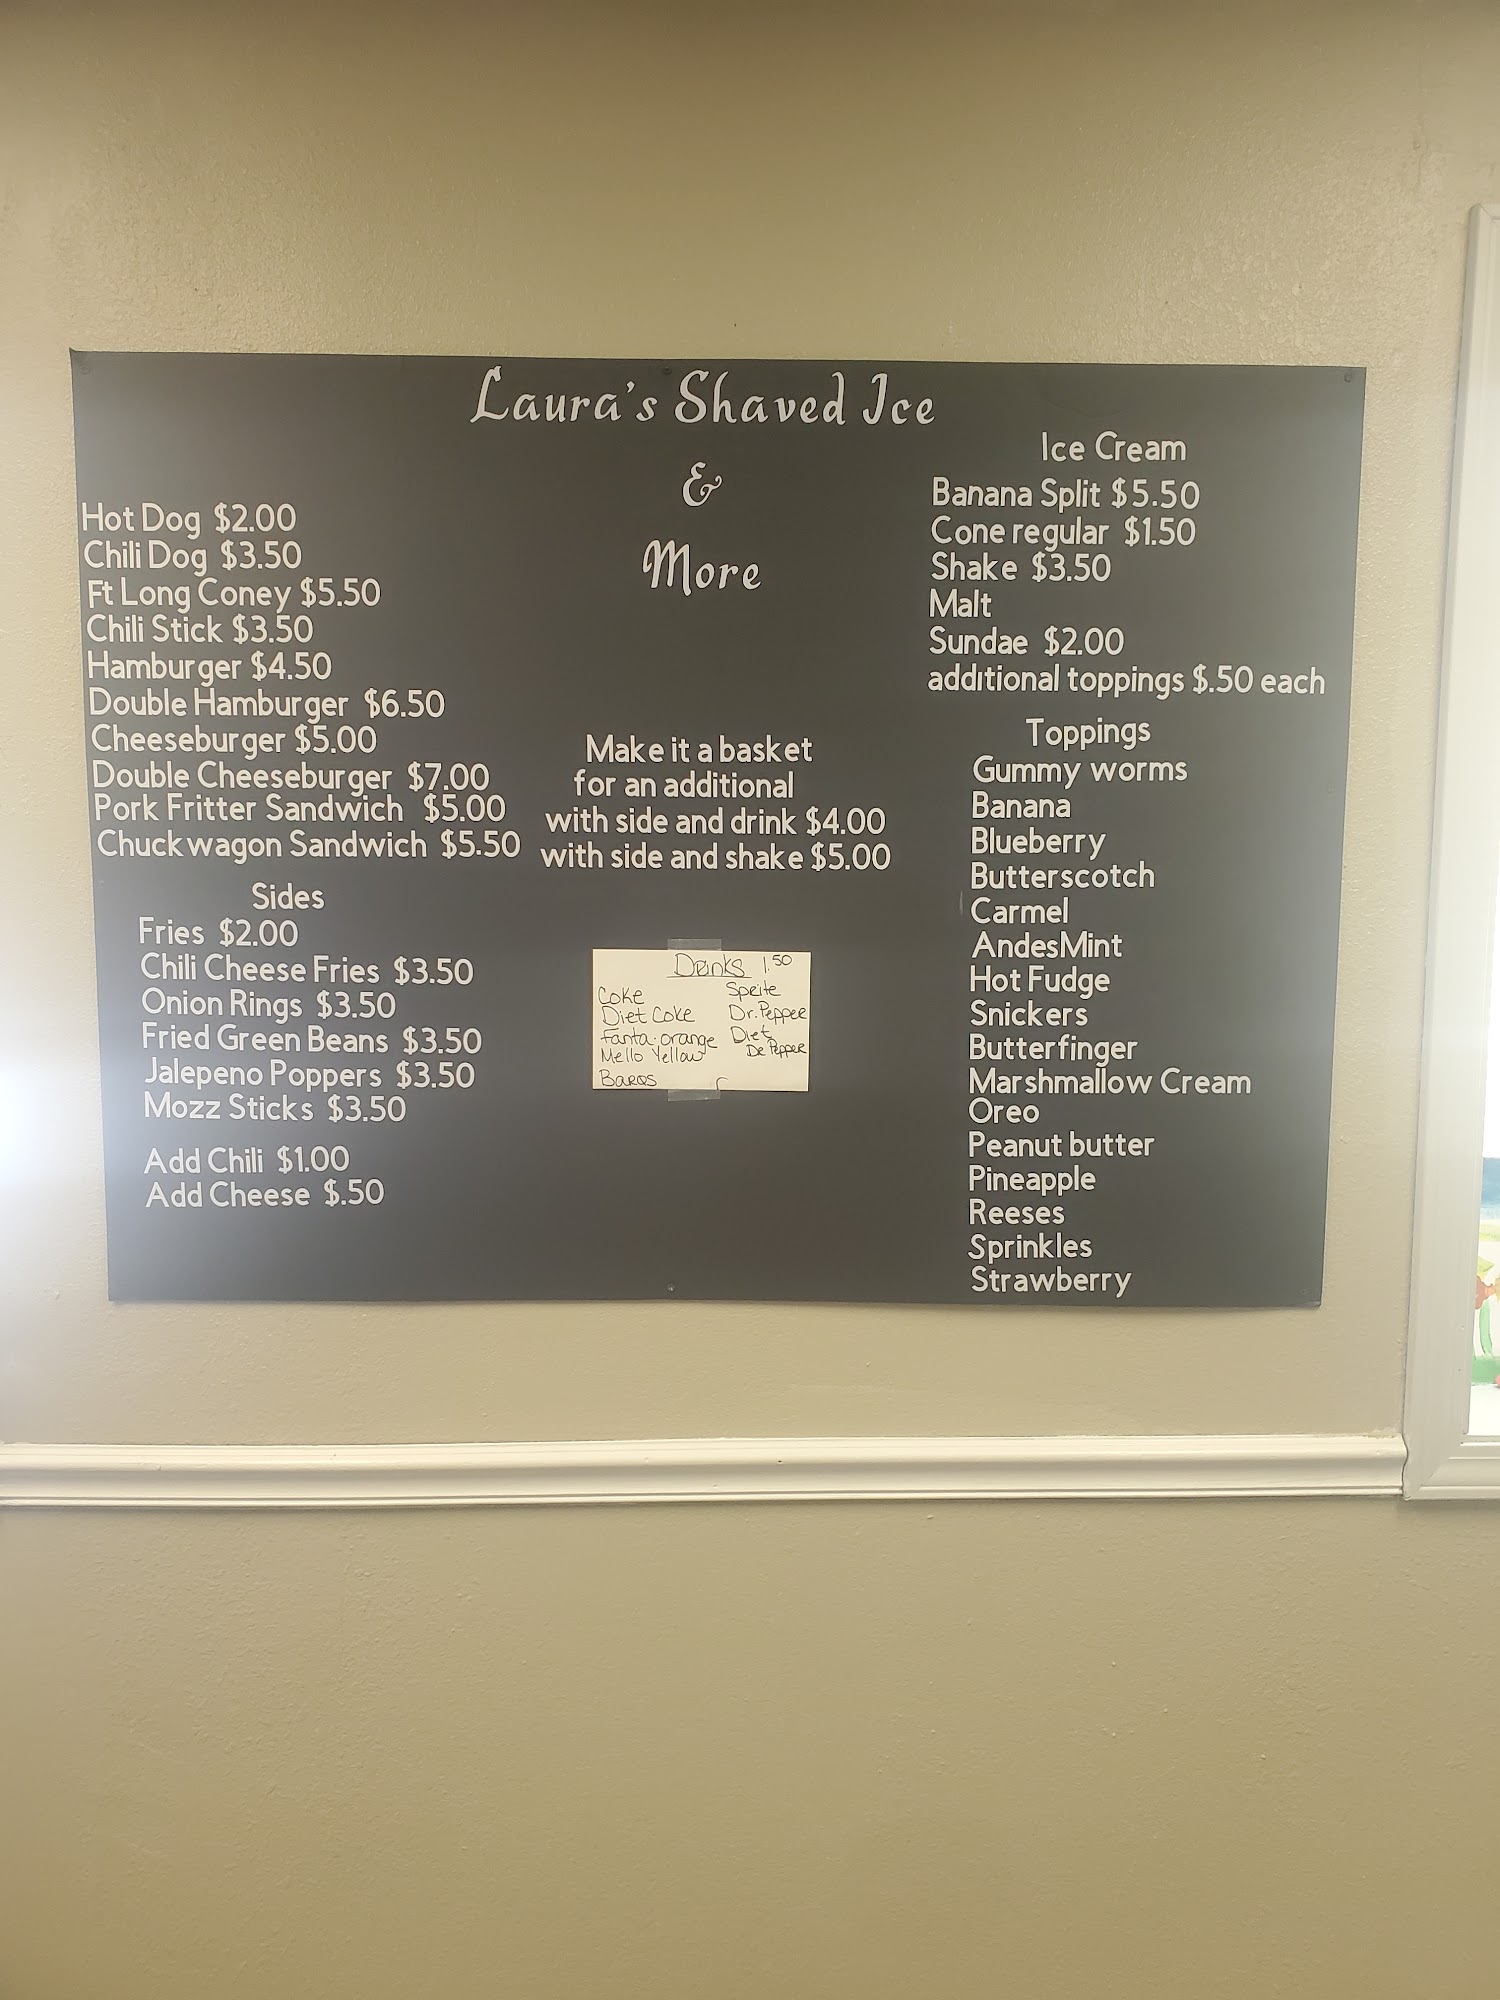 Laura's Shaved Ice
&
More
Hot Dog $2.00
Chili Dog $3.50
Ft Long Coney $5.50
Chili Stick $3.50
Hamburger $4.50
Double Hamburger $6.50
Cheeseburger $5.00
Double Cheeseburger $7.00
Pork Fritter Sandwich $5.00
Chuckwagon Sandwich $5.50
Sides
Fries $2.00
Chili Cheese Fries $3.50
Onion Rings $3.50
Fried Green Beans $3.50
Jalepeno Poppers $3.50
Mozz Sticks $3.50
Add Chili $1.00
Add Cheese $.50
Make it a basket
for an additional
with side and drink $4.00
with side and shake $5.00
Drinks 1.50
Coke
Diet Coke
Fanta-orange
Mello Yellow
Barqs
Sprite
Dr. Pepper
Diet
Dr Pepper
Ice Cream
Banana Split $5.50
Cone regular $1.50
Shake $3.50
Malt
Sundae $2.00
additional toppings $.50 each
Toppings
Gummy worms
Banana
Blueberry
Butterscotch
Carmel
AndesMint
Hot Fudge
Snickers
Butterfinger
Marshmallow Cream
Oreo
Peanut butter
Pineapple
Reeses
Sprinkles
Strawberry